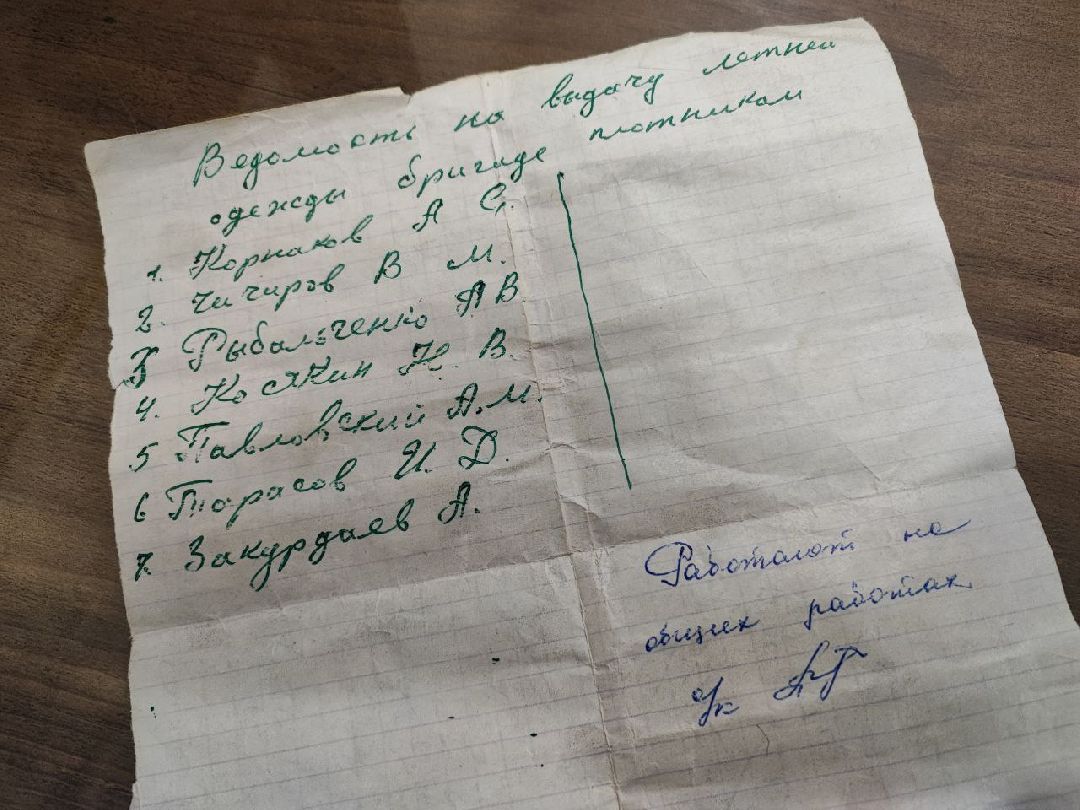 Ведомость на выдачу летней
одежды бригаде плотникам
1. Корнаков А С.
2. Чичиров В М.
3 Рыбальченко А В
4. Косякин Н. В.
5 Павловский А.М.
6 Тарасов И. Д.
7. Закурдаев А.
Работают на
общих работах